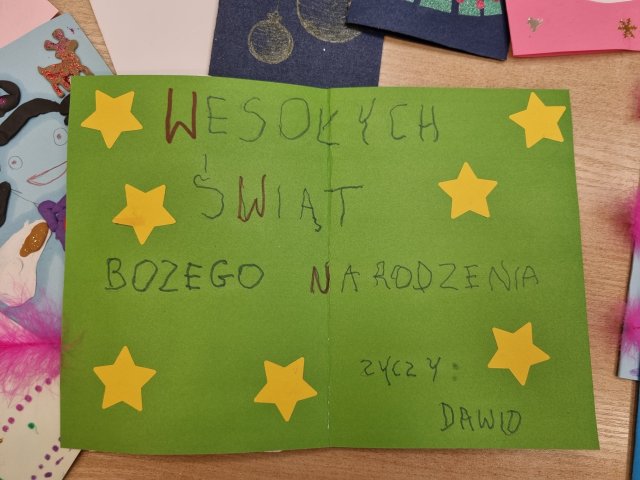 WESOŁYCH
ŚWIĄT
BOZEGO NARODZENIA
ZYCZY:
DAWID